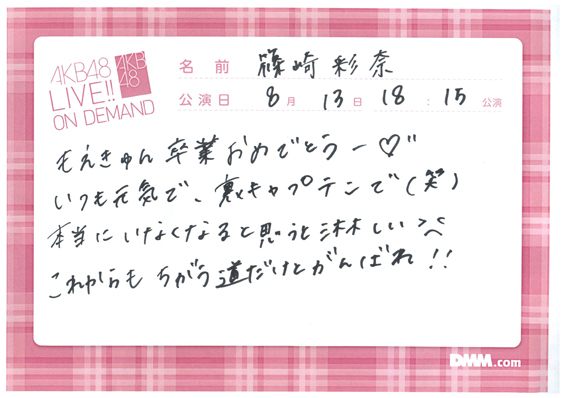 AKB48
LIVE!!
ON DEMAND
AKB
48
名前 篠崎彩奈
公演日 8月13日18:15公演
もえきゅん卒業おめでとうー♡"
いつも元気で、裏キャプテンで(笑)
本当にいなくなると思うと淋しい><
これからもちがう道だけどがんばれ!!
DMM.com